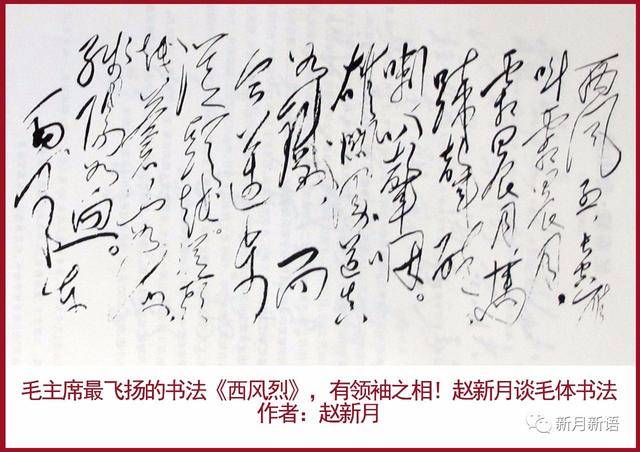 西风烈,長空雁
叫霜晨月。
霜晨月,馬
蹄聲碎,
喇叭聲咽。
雄關漫道真
如鐵,而
今邁步
從頭越。從頭
越,蒼山如海,
殘陽如血。
毛主席最飞扬的书法《西风烈》，有领袖之相！赵新月谈毛体书法
作者：赵新月
新月新语